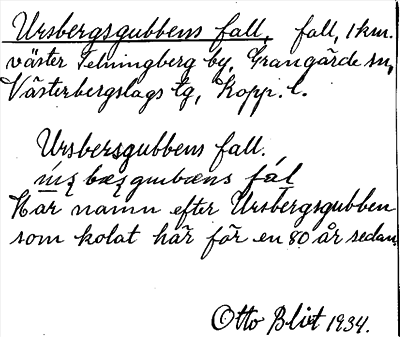 Ursbergsgubbens fall, fall, 1 km.
väster Selningberg by, Grangärde sn,
Västerbergslags tg, Kopp. l.
Ursbersgubbens fall.
fál
Har namn efter Ursbergsgubben
som kolat här för en 80 år sedan.
Otto Blixt 1934.